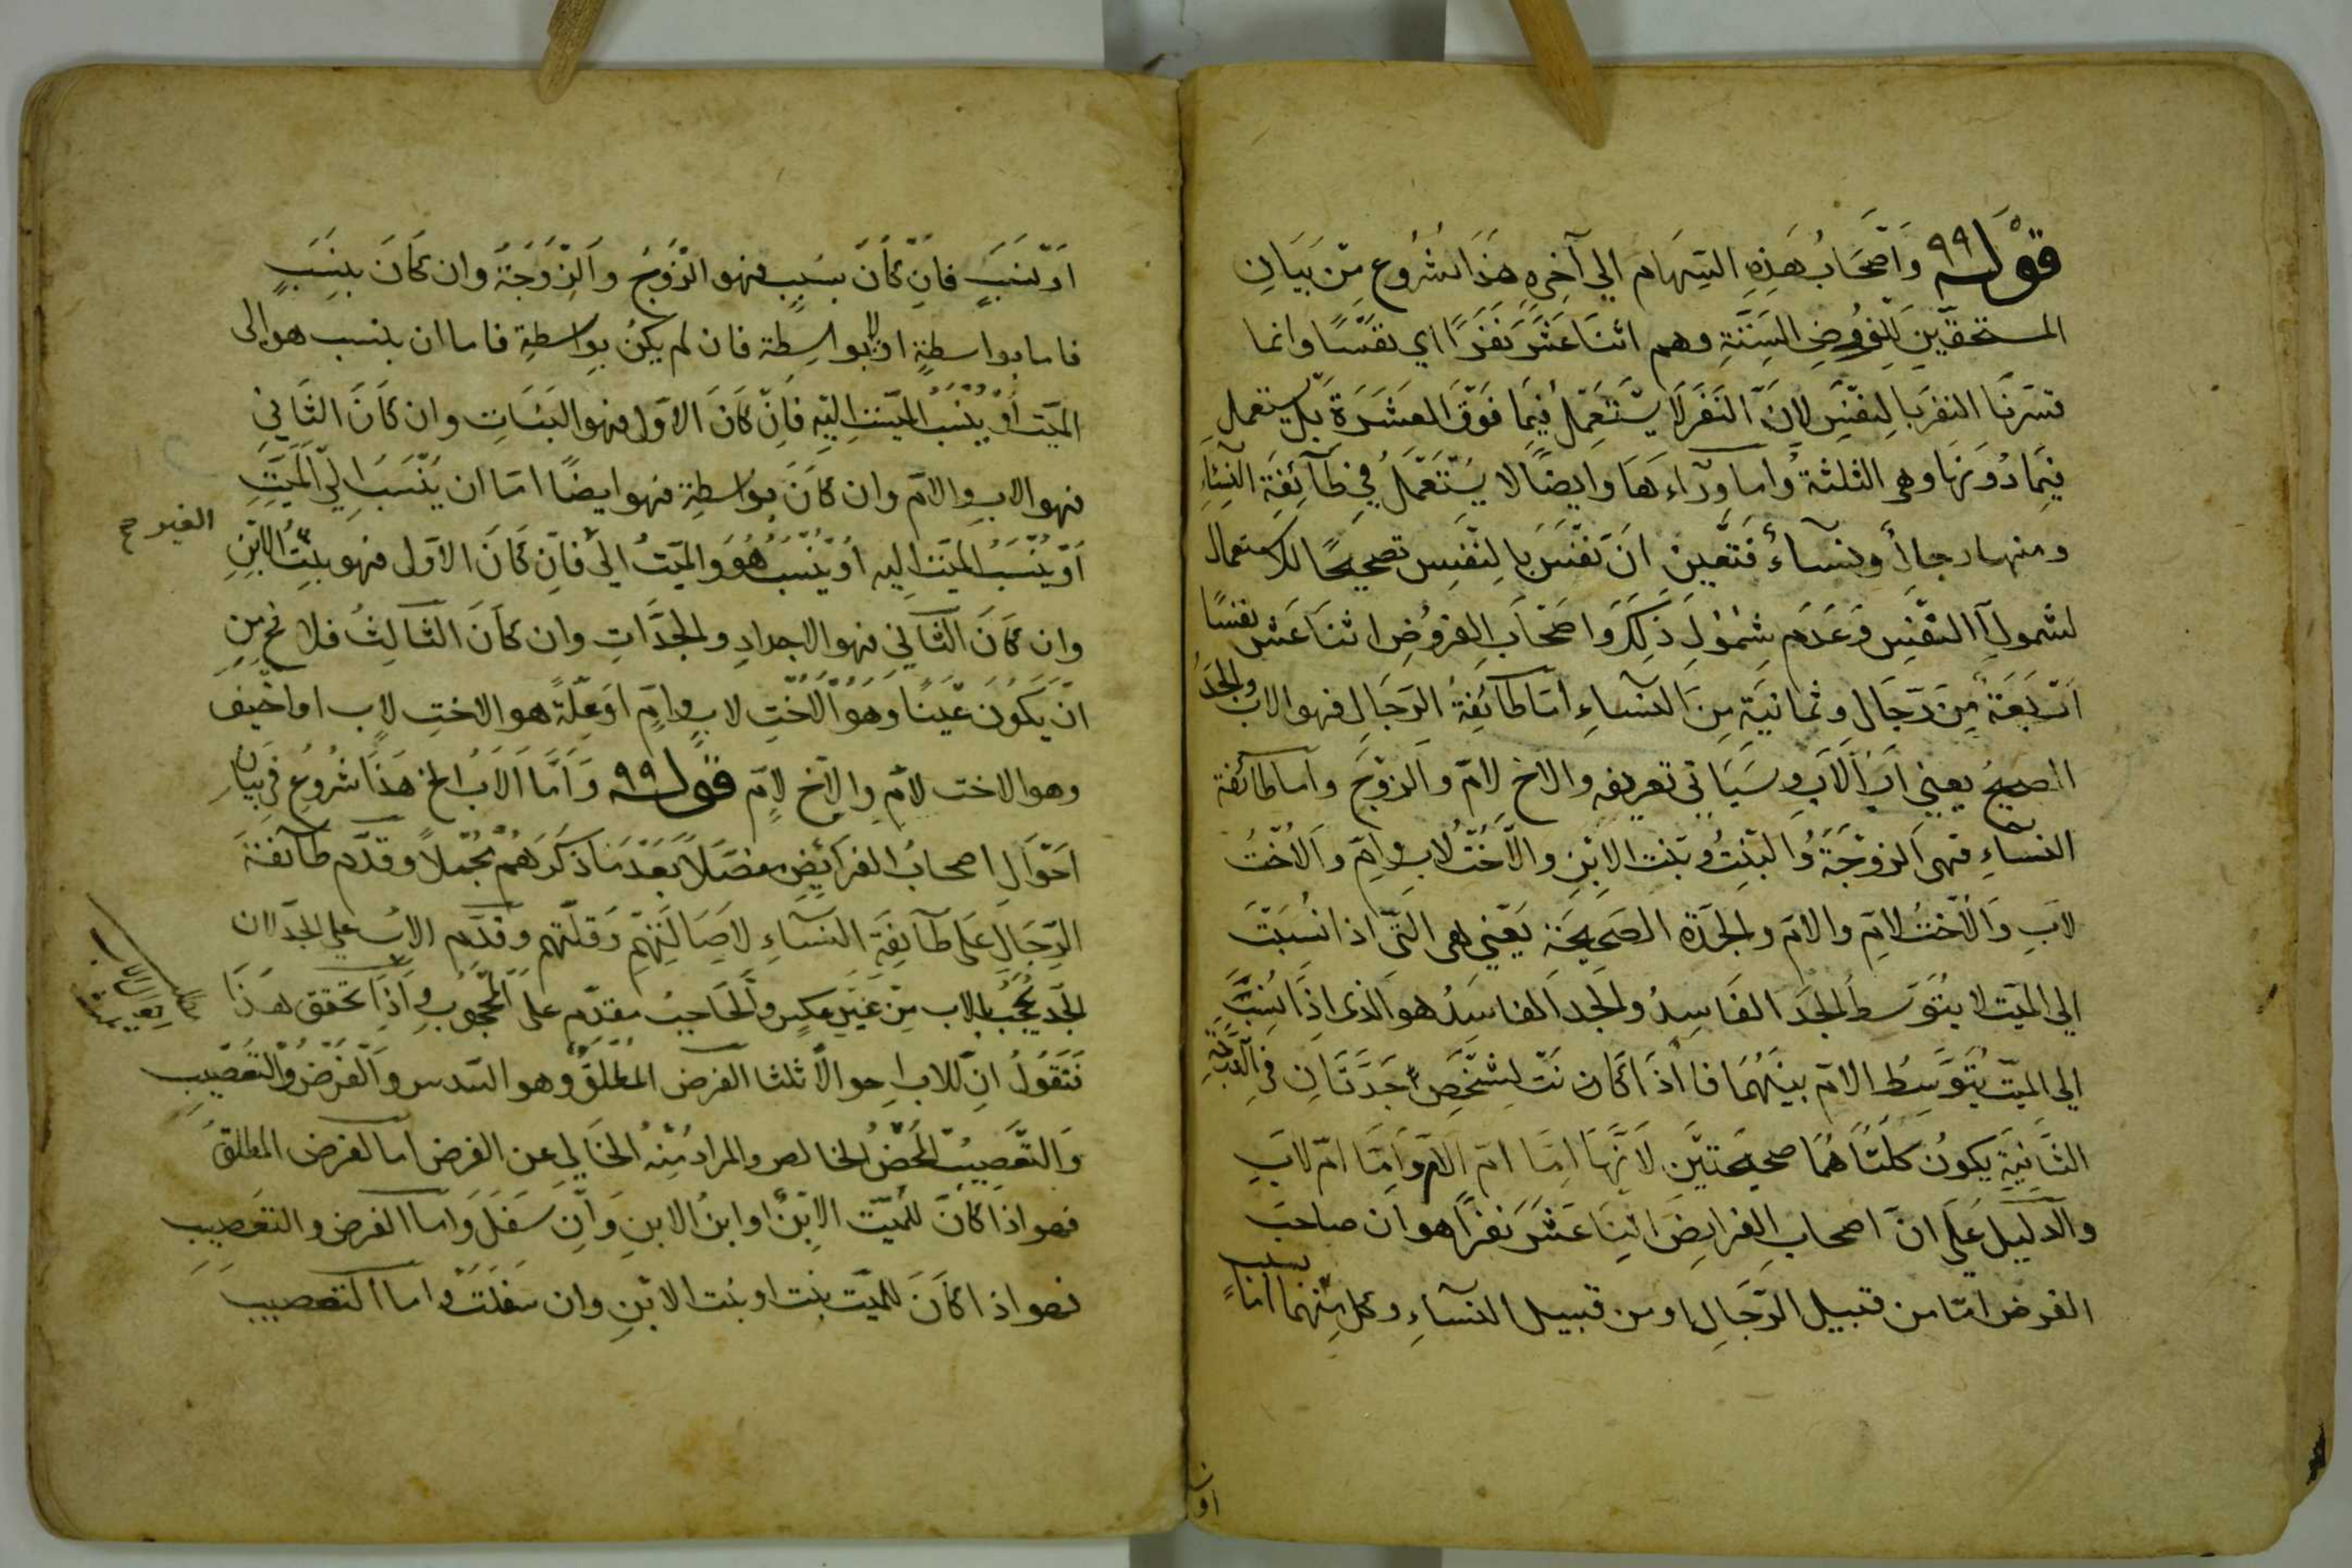 قوله وأصحاب هذه السهام الي آخره هذا شروع من بيان
المستحقين للفروض الستة وهم اثنا عشر نفرا اي نفسا وانما
فسرنا النفر بالنفس لان النفر لا يستعمل فيما فوق العشرة بل يستعمل
فيما دونها وهو الثلثة واما وراءها وايضا لا يستعمل في طائفة النساء
ومنها رجالا ونساء فتعين ان نفسر بالنفس تصحيحا للاستعمال
لشمول النفس وعدم شمول ذلك واصحاب الفروض اثنا عشر نفسا
اربعة من رجال وثمانية من النساء اما طائفة الرجال فهو الاب والجد
الصحيح يعني اب الاب وسياتي تعريفه والاخ لام والزوج واما طائفة
النساء فهى الزوجة والبنت وبنت الابن والاخت لاب وام والاخت
لاب والاخت لام والام والجدة الصحيحة يعني هى التى اذا نسبت
الي الميت لا يتوسط الجد الفاسد والجد الفاسد هو الذى اذا نسب
الي الميت يتوسط الام بينهما فاذا كانت لشخص جدتان في المرتبة
الثانية يكون كلتاهما صحيحتين لانها اما ام الام واما ام لاب
والدليل على ان اصحاب الفرايض اثنا عشر نفرا هو ان صاحب
الفرض اما من قبيل الرجال او من قبيل النساء وكل منهما اما بسبب
او ن
او نسب فان كان بسبب فهو الزوج والزوجة وان كان بنسب
فاما بواسطة او لا بواسطة فان لم يكن بواسطة فاما ان ينسب هو الى
الميت او ينسب الميت اليه فان كان الاول فهو البنات وان كان الثاني
فهو الاب والام وان كان بواسطة فهو ايضا اما ان ينسب الي الميت
او ينسب الميت اليه او ينسب هو والميت الى فان كان الاول فهو بنت الابن
الغير صح
وان كان الثاني فهو الاجداد والجدات وان كان الثالث فلا يخ من
ان يكون عينا وهو الاخت لاب وام او علة هو الاخت لاب او اخيف
وهو الاخت لام والاخ لام قوله واما الاب الخ هذا شروع في بيان
احوال اصحاب الفرائض مفصلا بعد ما ذكرهم مجملا وقدم طائفة
الرجال على طائفة النساء لاصالتهم وقلتهم وقدم الاب على الجد لان
الجد يحجب بالاب من غير عكس والحاجب مقدم على المحجوب واذا تحقق هذا
فنقول ان للاب احوالا ثلثا الفرض المطلق وهو السدس والفرض والتعصيب
والتعصيب المحض الخالص والمراد منه الخالي عن الفرض اما الفرض المطلق
فهو اذا كان للميت الابن او ابن الابن وان سفل واما الفرض والتعصيب
فهو اذا كان للميت بنت او بنت الابن وان سفلت واما التعصيب